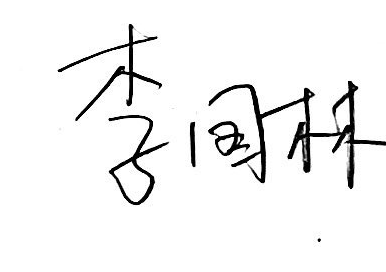 李国林